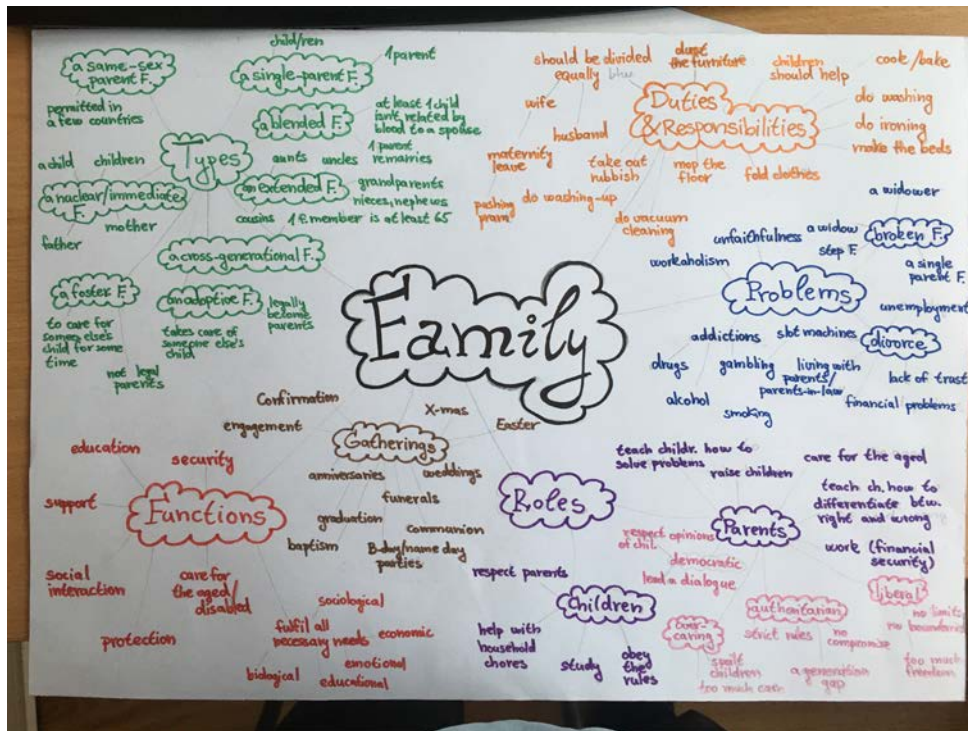 Family
Types
a same-sex
parent F.
permitted in
a few countries
child/ren
a single-parent F.
1 parent
a blended F.
at least 1 child
isn't related by
blood to a spouse
1 parent
remarries
a child
children
a nuclear/immediate
F.
mother
father
aunts
uncles
an extended F.
grandparents
nieces, nephews
cousins
1 F. member is at least 65
a cross-generational F.
a foster F.
to care for
someone else's
child for some
time
not legal
parents
an adoptive F.
legally
become
parents
takes care of
someone else's
child
Duties
& Responsibilities
should be divided
equally
wife
husband
maternity
leave
pushing
pram
do washing-up
take out
rubbish
do vacuum
cleaning
mop the
floor
fold clothes
dust
the furniture
children
should help
cook/bake
do washing
do ironing
make the beds
Problems
unfaithfulness
workaholism
a widower
a widow
step F.
broken F.
a single
parent F.
unemployment
divorce
lack of trust
financial problems
living with
parents/
parents-in-law
slot machines
addictions
drugs
gambling
alcohol
smoking
Gatherings
Confirmation
engagement
X-mas
Easter
anniversaries
weddings
funerals
graduation
communion
baptism
B-day/name day
parties
Functions
education
security
support
social
interaction
care for
the aged/
disabled
protection
fulfil all
necessary needs
sociological
economic
emotional
educational
biological
Roles
Parents
teach childr. how to
solve problems
raise children
care for the aged
teach ch. how to
differentiate btw.
right and wrong
work (financial
security)
respect opinions
of chil.
democratic
lead a dialogue
liberal
no limits
no boundaries
too much
freedom
authoritarian
strict rules
no
compromise
a generation
gap
over-
caring
spoilt
children
too much care
Children
respect parents
help with
household
chores
study
obey
the
rules